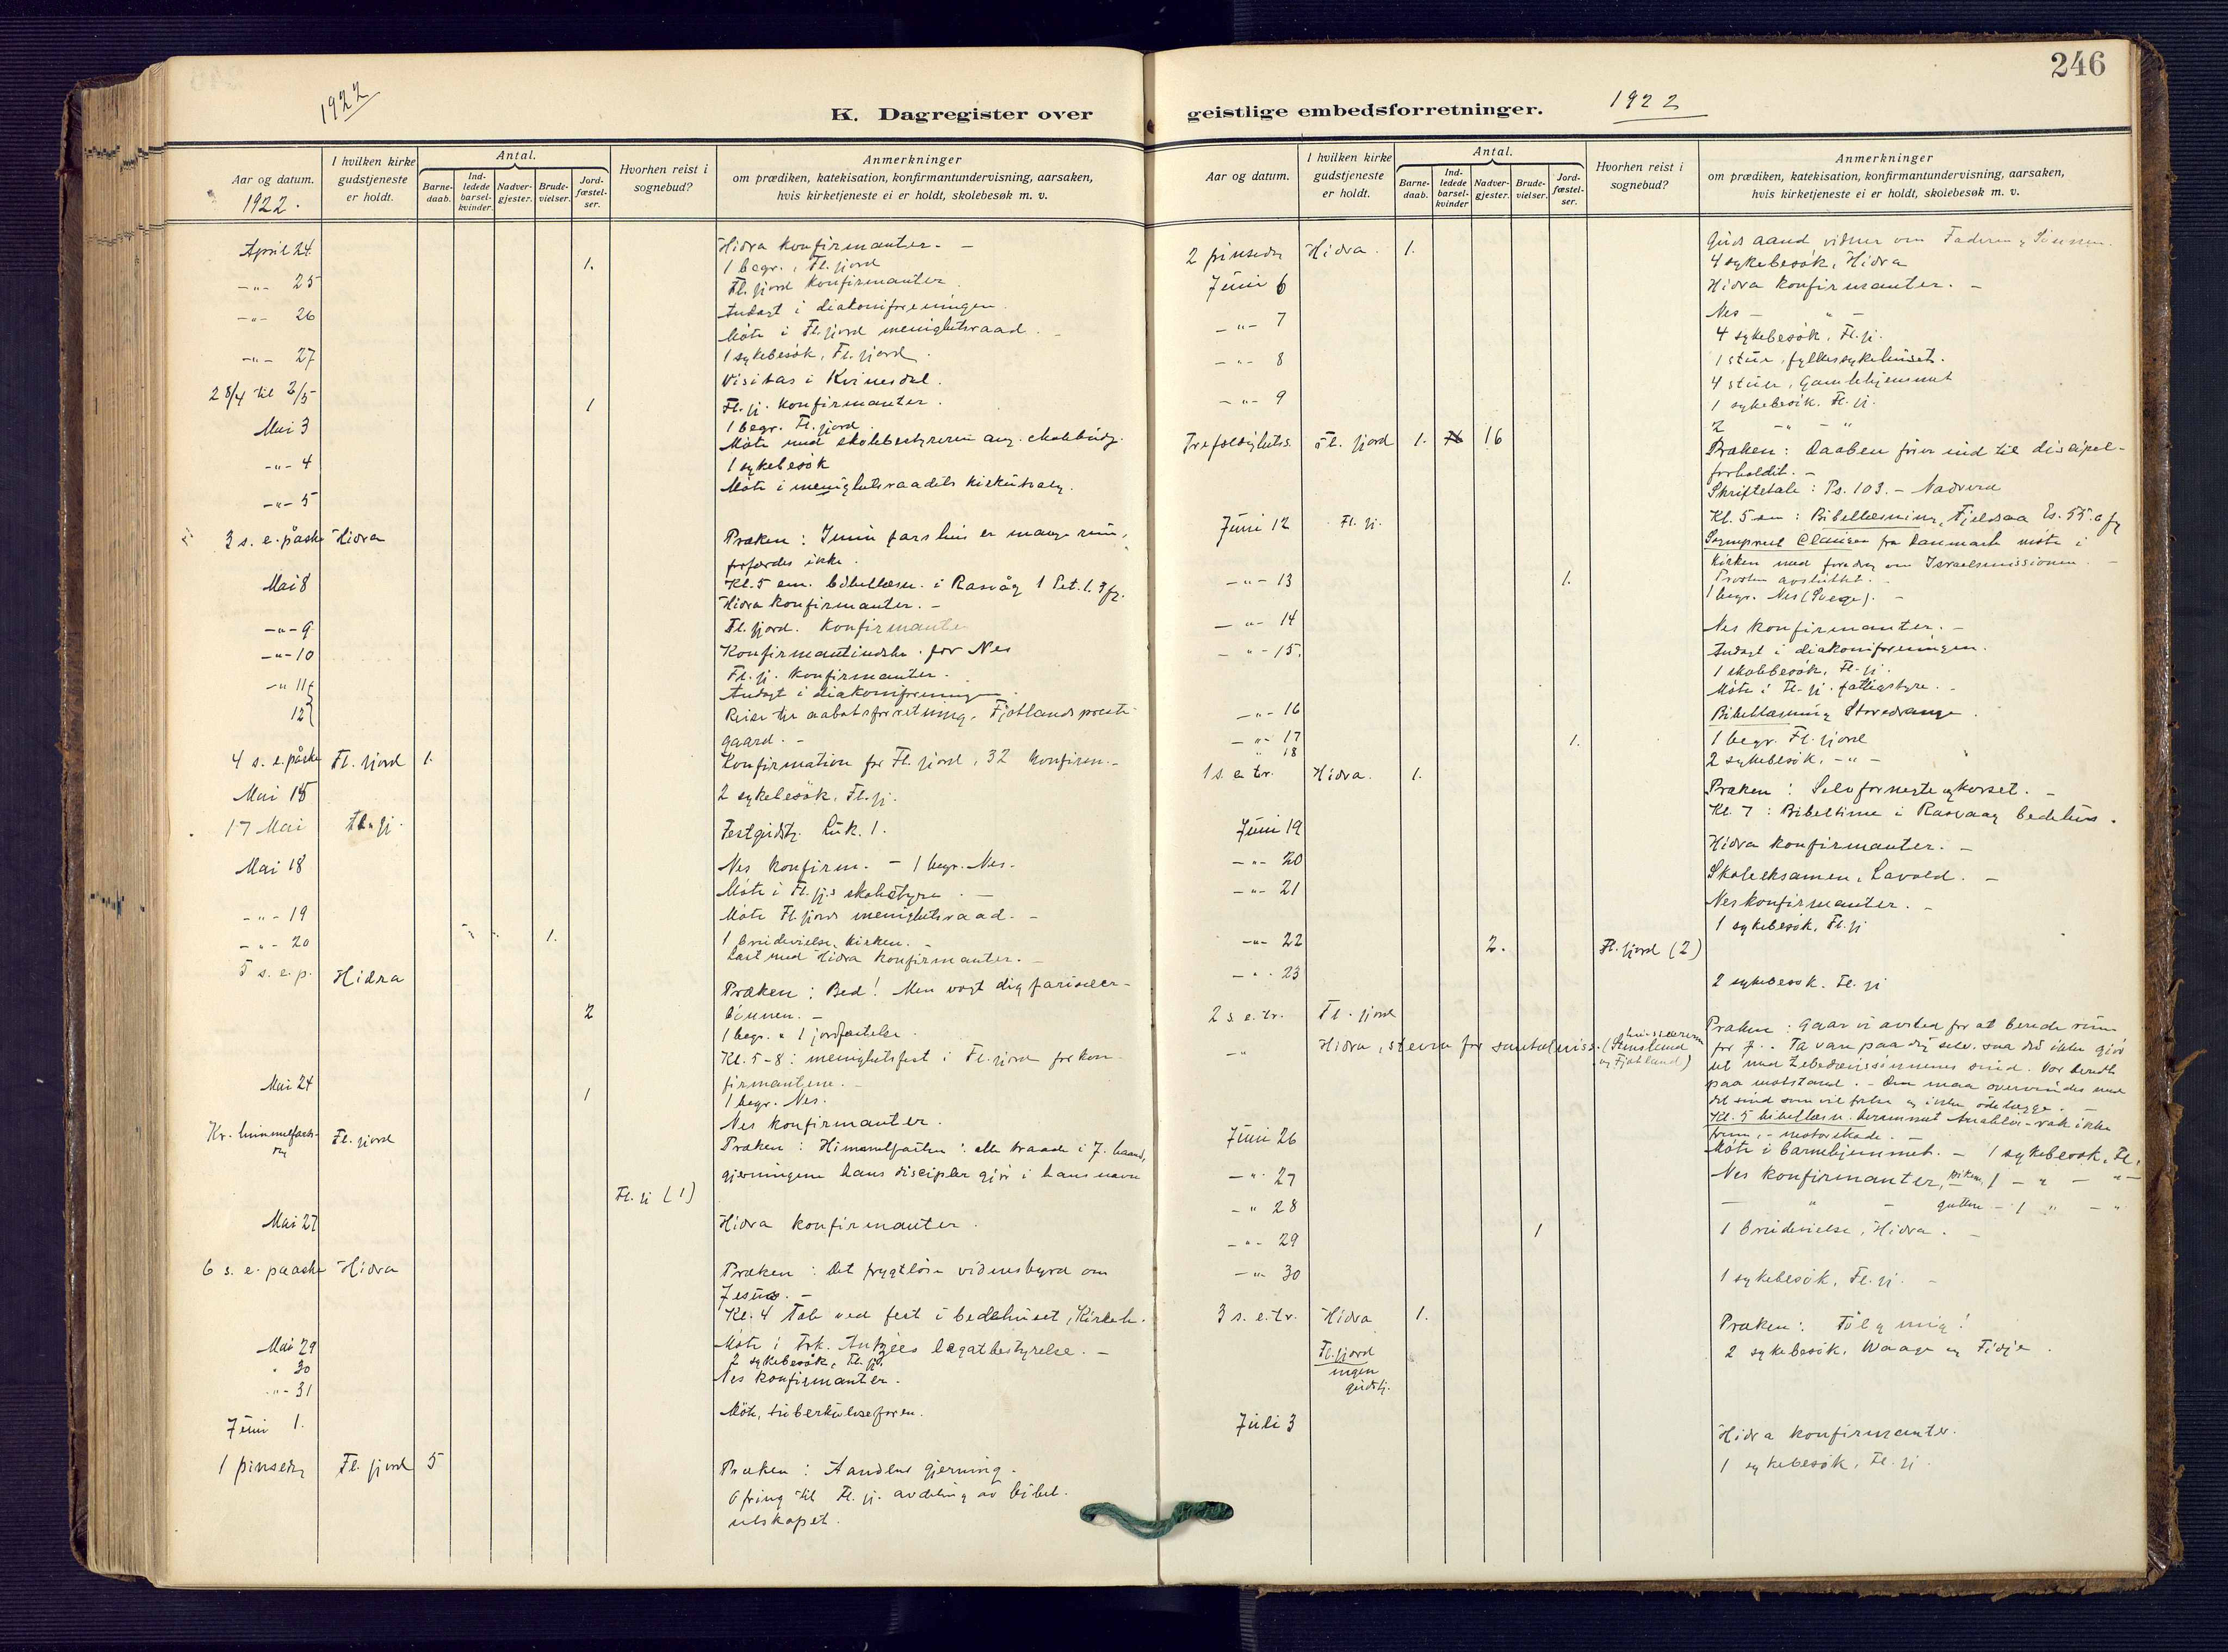 246
1922
K. Dagregister over
Aar og datum.
1922.
I hvilken kirke gudstjeneste er holdt.
Antal.
Barne-daab.
Ind-ledede barsel-kvinder.
Nadver-gjester.
Brude-vielser.
Jord-fæstel-ser.
Hvorhen reist i sognebud?
Anmerkninger
om prædiken, katekisation, konfirmantundervisning, aarsaken,
hvis kirketjeneste ei er holdt, skolebesøk m. v.
April 24 Hidra konfirmanter. -
1. 1 begr., Fl.fjord
-"- 25 Fl.fjord konfirmanter.
-"- 26 Andagt i diakoniforeningen.
Møte i Fl.fjord menighetsraad.
-"- 27 1 sykebesøk, Fl.fjord.
28/4 til 2/5 Visitas i Kvinesdal.
Mai 3 Fl.fj. konfirmanter.
1 1 begr. Fl.fjord.
-"- 4 Møte med skolebestyreren ang. skolebudg.
1 sykebesøk
-"- 5 Møte i menighetsraadets kirkeutvalg.
3 s. e. påske Hidra Præken: I min fars hus er mange rum,
forfærdes ikke.
Kl. 5 em. bibellæsn. i Rasvåg 1 Pet. 1. 3 fg.
Mai 8 Hidra konfirmanter. -
-"- 9 Fl.fjord. Konfirmanter
-"- 10 Konfirmantindskr. for Nes
Fl.fj. konfirmanter.
-"- 11 Andagt i diakoniforeningen.
12 Reise til aabotsforretning, Fjotlands preste-
gaard. -
4 s. e. påske Fl.fjord 1. Konfirmation for Fl.fjord, 32 konfirm. -
Mai 15 2 sykebesøk, Fl.fj.
17 Mai Fl.fj. Festgudstj. Luk. 1.
Mai 18 Nes konfirm. - 1 begr. Nes.
Møte i Fl.fj.s skolestyre. -
-"- 19 Møte Fl.fjords menighetsraad. -
-"- 20 1. 1 brudevielse, kirken. -
Læst med Hidra konfirmanter. -
5 s. e. p. Hidra Præken: Bed! Men vogt dig farisæer-
bönnen. -
2 1 begr. & 1 jordfæstelse.
Kl. 5-8: menighetsfest i Fl.fjord for kon-
firmantene. -
Mai 24 1 1 begr. Nes.
Nes konfirmanter.
Kr. himmelfarts-
dag Fl.fjord Præken: Himmelfarten: alle traade i J. haand,
gjerningene hans disciple gjør i hans navn
Fl.fj (1)
Mai 27 Hidra konfirmanter.
6 s. e. paaske Hidra Præken: Det frygtløse vidnesbyrd om
Jesus. -
Kl. 4 Tale ved fest i bedehuset, Kirkeh.
Mai 29 Møte i Frk. legatbestyrelse. -
" 30 2 sykebesøk, Fl.fj.
"- 31 Nes konfirmanter.
Juni 1. Møte, tuberkuloseforen.
1 pinsedag Fl.fjord 5 Præken: Aandens gjerning.
Ofring til Fl.fj. avdeling av bibel-
selskapet.
geistlige embedsforretninger.
1922
Aar og datum.
I hvilken kirke gudstjeneste er holdt.
Antal.
Barne-daab.
Ind-ledede barsel-kvinder
Nadver-gjester.
Brude-vielser.
Jord-fæstel-ser.
Hvorhen reist i sognebud?
Anmerkninger
om prædiken, katekisation, konfirmantundervisning, aarsaken,
hvis kirketjeneste ei er holdt, skolebesøk m. v.
2 pinsedag Hidra. 1. Guds aand vidner om Faderen og Sönnen.
4 sykebesøk, Hidra
Juni 6 Hidra konfirmanter. -
-"- 7 Nes - " -
4 sykebesøk, Fl.fj.
-"- 8 1 stue, fylkessykehuset.
4 stuer, Gamlehjemmet
-"- 9 1 sykebesøk. Fl.fj.
2 -"- -"-
Trefoldighets. Fl.fjord 1. 16 Præken: Daaben förer ind til discipel-
forholdet. -
Skriftetale: Ps. 103. - Nadverd
Kl. 5 em: Bibellæsning, Fjeldsaa Es. 55. 6 fg
Juni 12 Fl.fj. Sogneprest Clausen fra Danmark møte i
kirken med foredrag om Israelsmissionen. -
Provsten avsluttet. -
-"- 13 1. 1 begr. Nes (Svege). -
-"- 14 Nes konfirmanter. -
-"- 15. Andagt i diakoniforeningen.
1 skolebesøk, Fl.fj.
Møte i Fl.fj. fattigstyre. -
-"- 16 Bibellæsning Storedrange.
-"- 17 1. 1 begr. Fl.fjord
" 18 2 sykebesøk, -"-
1 s. e. tr. Hidra. 1. Præken: Selvfornegte og korset. -
Kl. 7: Bibeltime i Rasvaag bedehus.
Juni 19 Hidra konfirmanter. -
-"- 20 Skoleeksamen, Lavold. -
-"- 21 Nes konfirmanter. -
1 sykebesøk, Fl.fj
-"- 22 2. Fl.fjord (2)
-"- 23 2 sykebesøk. Fl.fj
2 s. e. tr. Fl.fjord Præken: Gaar vi avsted for at berede rum
for J.. Ta vare paa dig selv, saa du ikke gjör
det med Zebedæussönnenes sind. Vær beredt
paa motstand. - Den maa overvindes med
det sind som vil frelse og ikke ödelægge. -
-"- Hidra, stevne for santalmiss. (
og Fjotland)
Kl. 5 bibellæsn. berammet Anabelö - rak ikke
frem, - motorskade. -
Juni 26 Møte i barnehjemmet. - 1 sykebesøk, Fl.
-"- 27 Nes konfirmanter, piker, 1 -"- -"-
-"- 28 - " - gutter - 1 " - "
-"- 29 1 1 brudevielse, Hidra. -
-"- 30 1 sykebesøk, Fl.fj. -
3 s. e. tr. Hidra 1. Præken: Fölg mig!
Fl.fjord
ingen
gudstj.
2 sykebesøk, Waage og Fidje.
Juli 3 Hidra konfirmanter.
1 sykebesøk, Fl.fj.